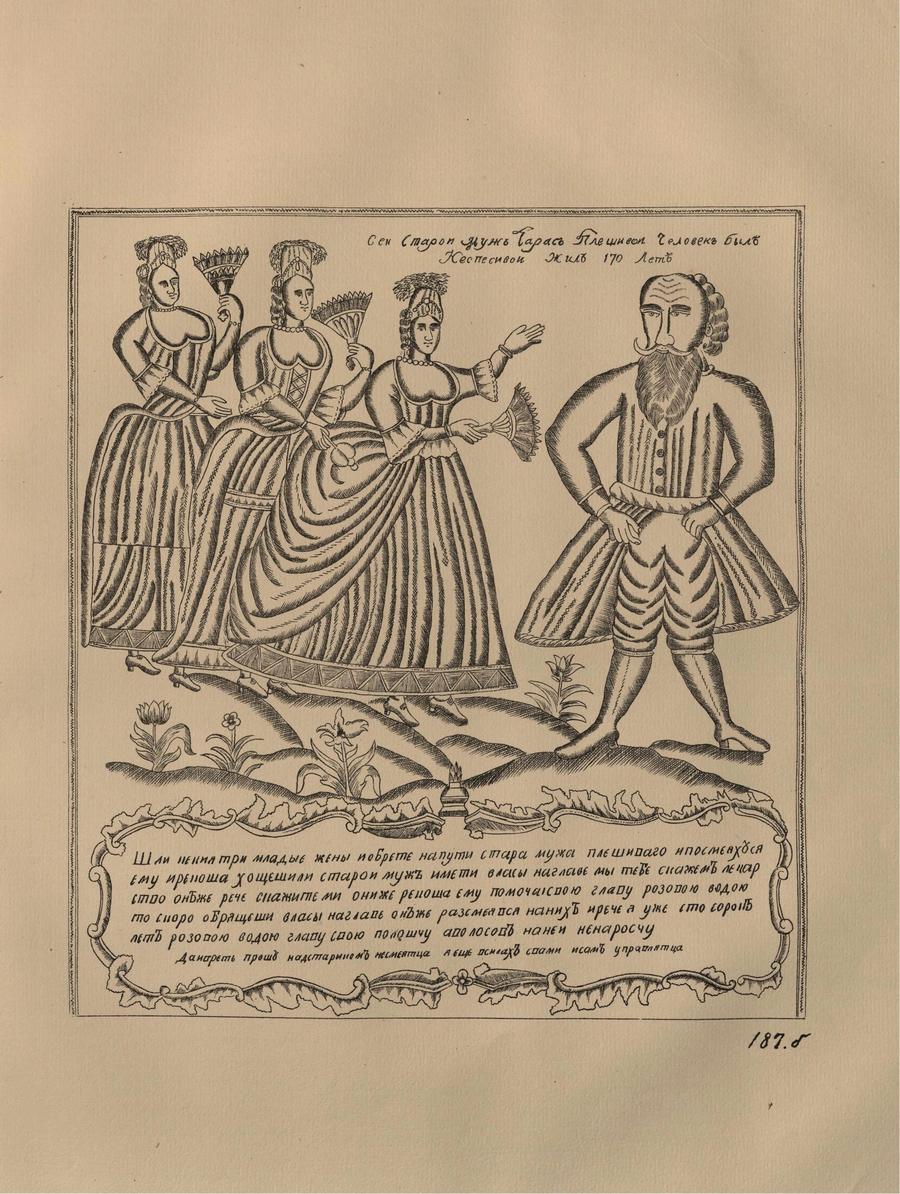 Сеи Старои Мужъ Тарасъ Плешивои Человекъ былъ
Неспесивои Жилъ 170 Летъ
Шли некия три младые жены иобрете напути стара мужа плешиваго ипосмеяхуся
ему ирекоша хощешили старои мужъ имети власы наглаве мы тебе скажемъ лекар
ство онъже рече скажите ми ониже рекоша ему помочаисвою главу розовою водою
то скоро обрящеши власы наглаве онъже разсмеявся нанихъ ирече я уже сто сорокъ
летъ розовою водою главу свою полощу аволосовъ наней ненаросчу
Данапреть прошу надстарикомъ несмеятца
187.б